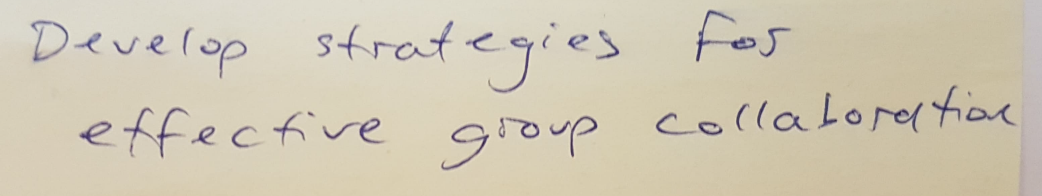 Develop strategies for
effective group collaboration